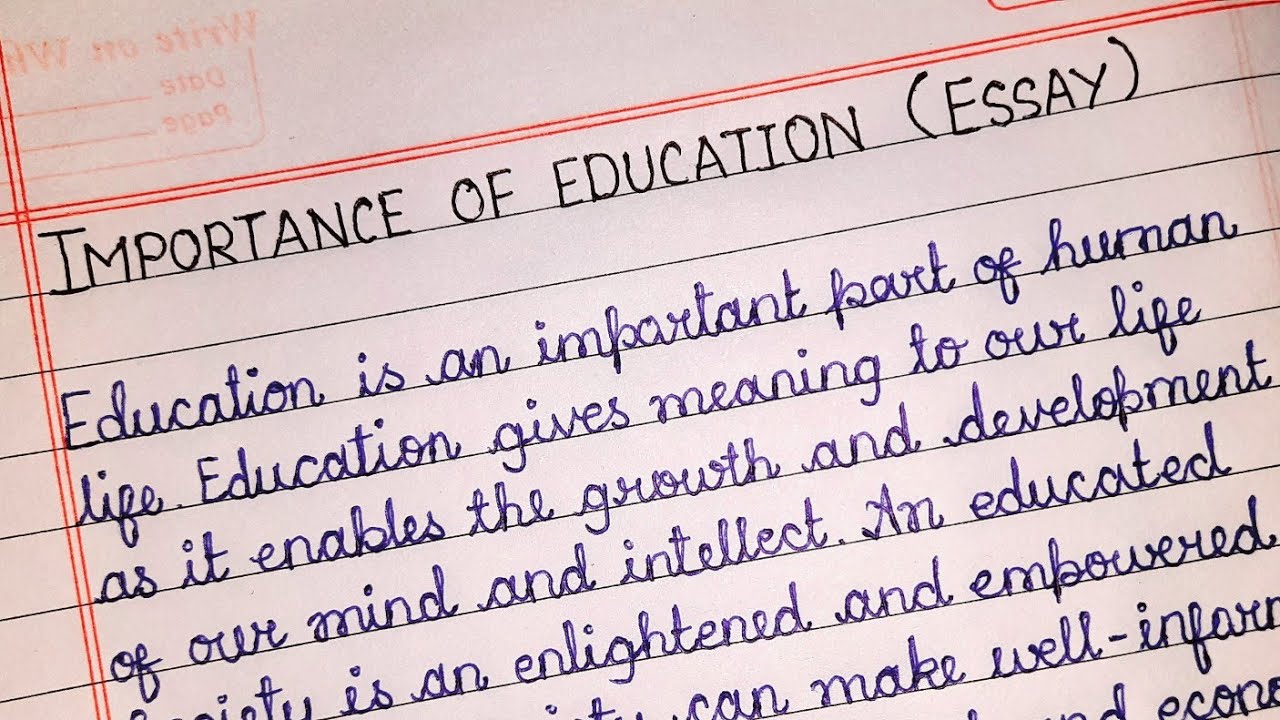 Write on W
Date
Page
IMPORTANCE OF EDUCATION (ESSAY)
Education is an important part of human
life. Education gives meaning to our life
as it enables the growth and development
of our mind and intellect. An educated
society is an enlightened and empowered
can make well-inform
and econo